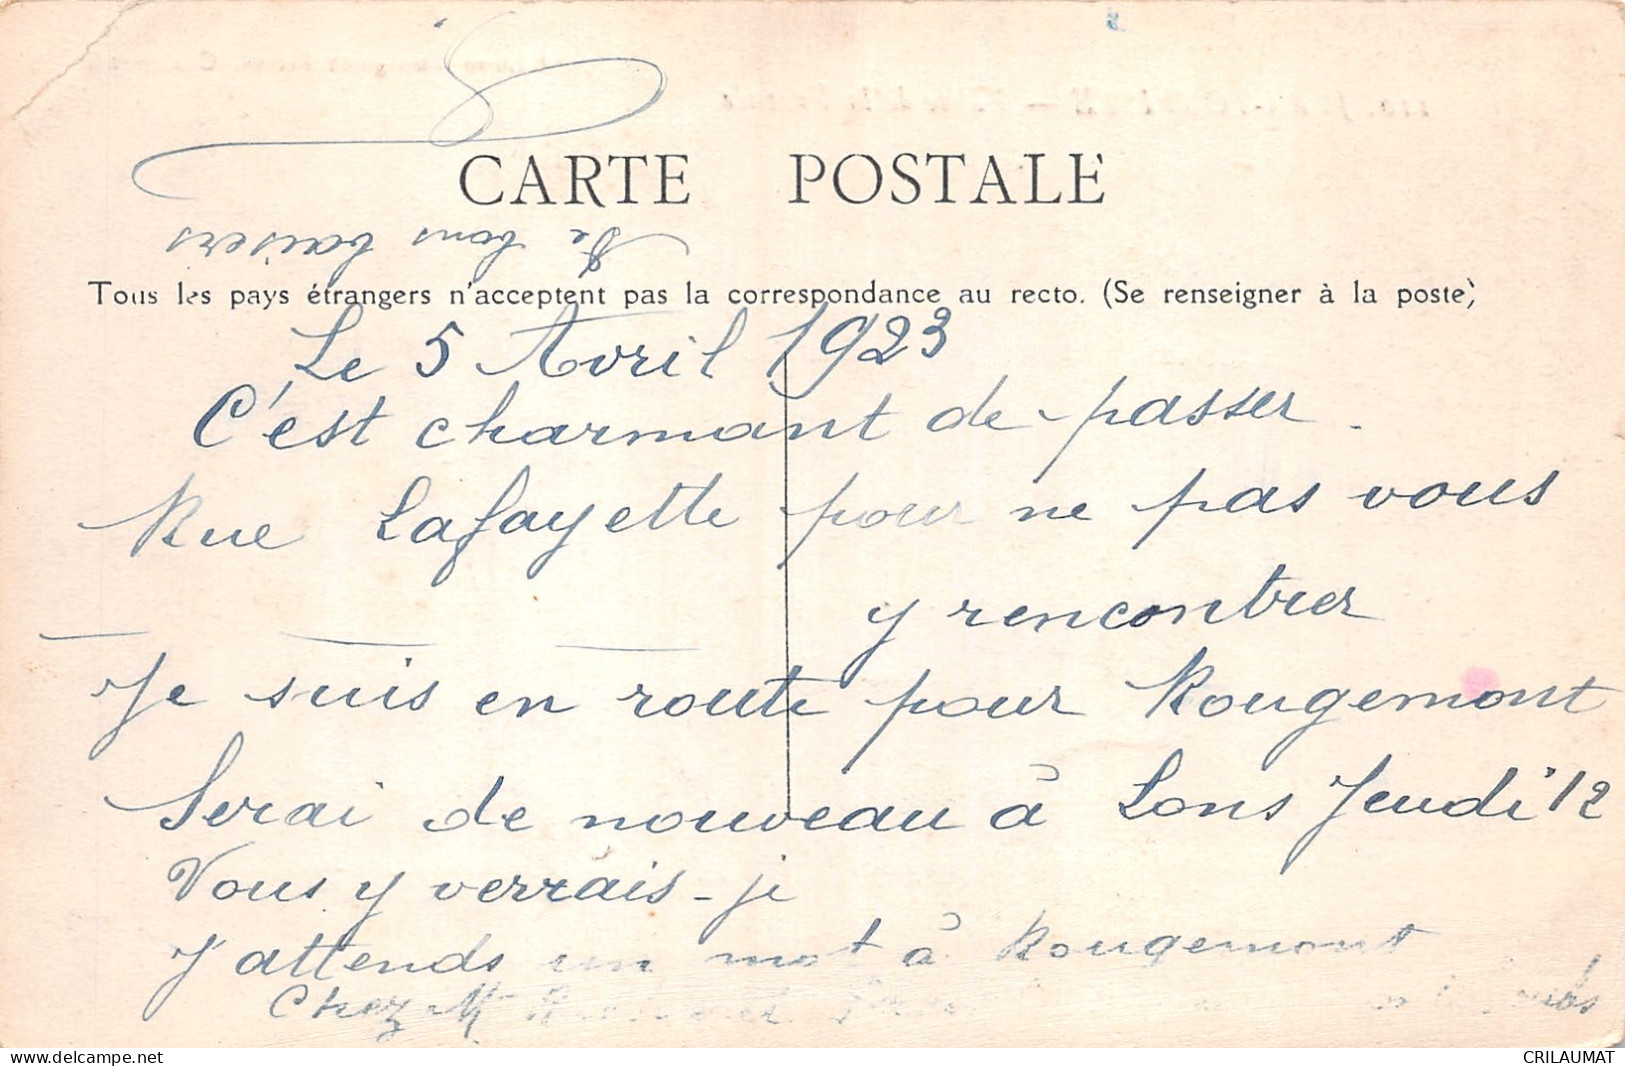 CARTE POSTALE
De bons baisers
Tous les pays étrangers n'acceptent pas la correspondance au recto. (Se renseigner à la poste)
Le 5 Avril 1923
C'est charmant de passer
Rue Lafayette pour ne pas vous
y rencontrer
Je suis en route pour Rougemont
Serai de nouveau à Lons Jeudi 12
Vous y verrais-je
J'attends un mot à Rougemont
Chez Mr
CRILAUMAT